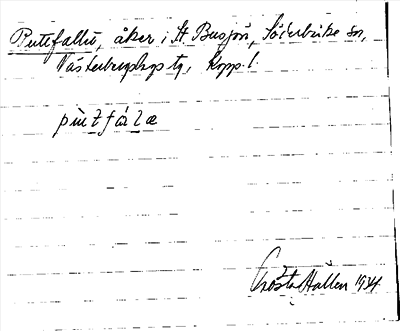 Puttfallet, åker i St Busjön, Söderbärke sn,
Västerbergslags tg, Kopp. l.
pùtfála
Gösta Hallén 1934